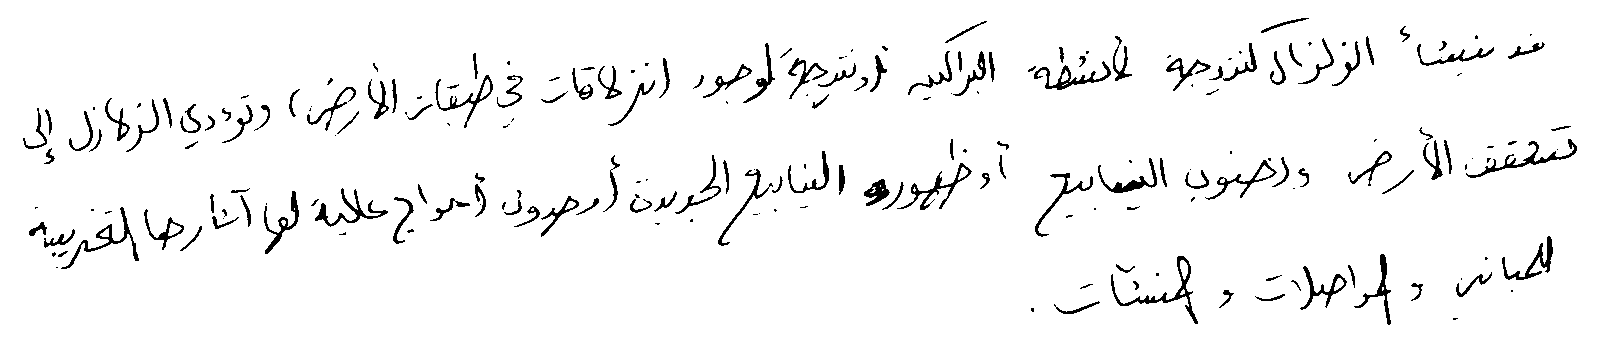 قد ينشأ الزلزال كنتيجة لأنشطة البراكين أو نتيجة لوجود انزلاقات في طبقات الأرض، وتؤدي الزلازل إلى
تشقق الأرض ونضوب الينابيع أو ظهور الينابيع الجديدة أو حدوث أمواج عالية لها آثارها التخريبية
للمباني و المواصلات و المنشآت .